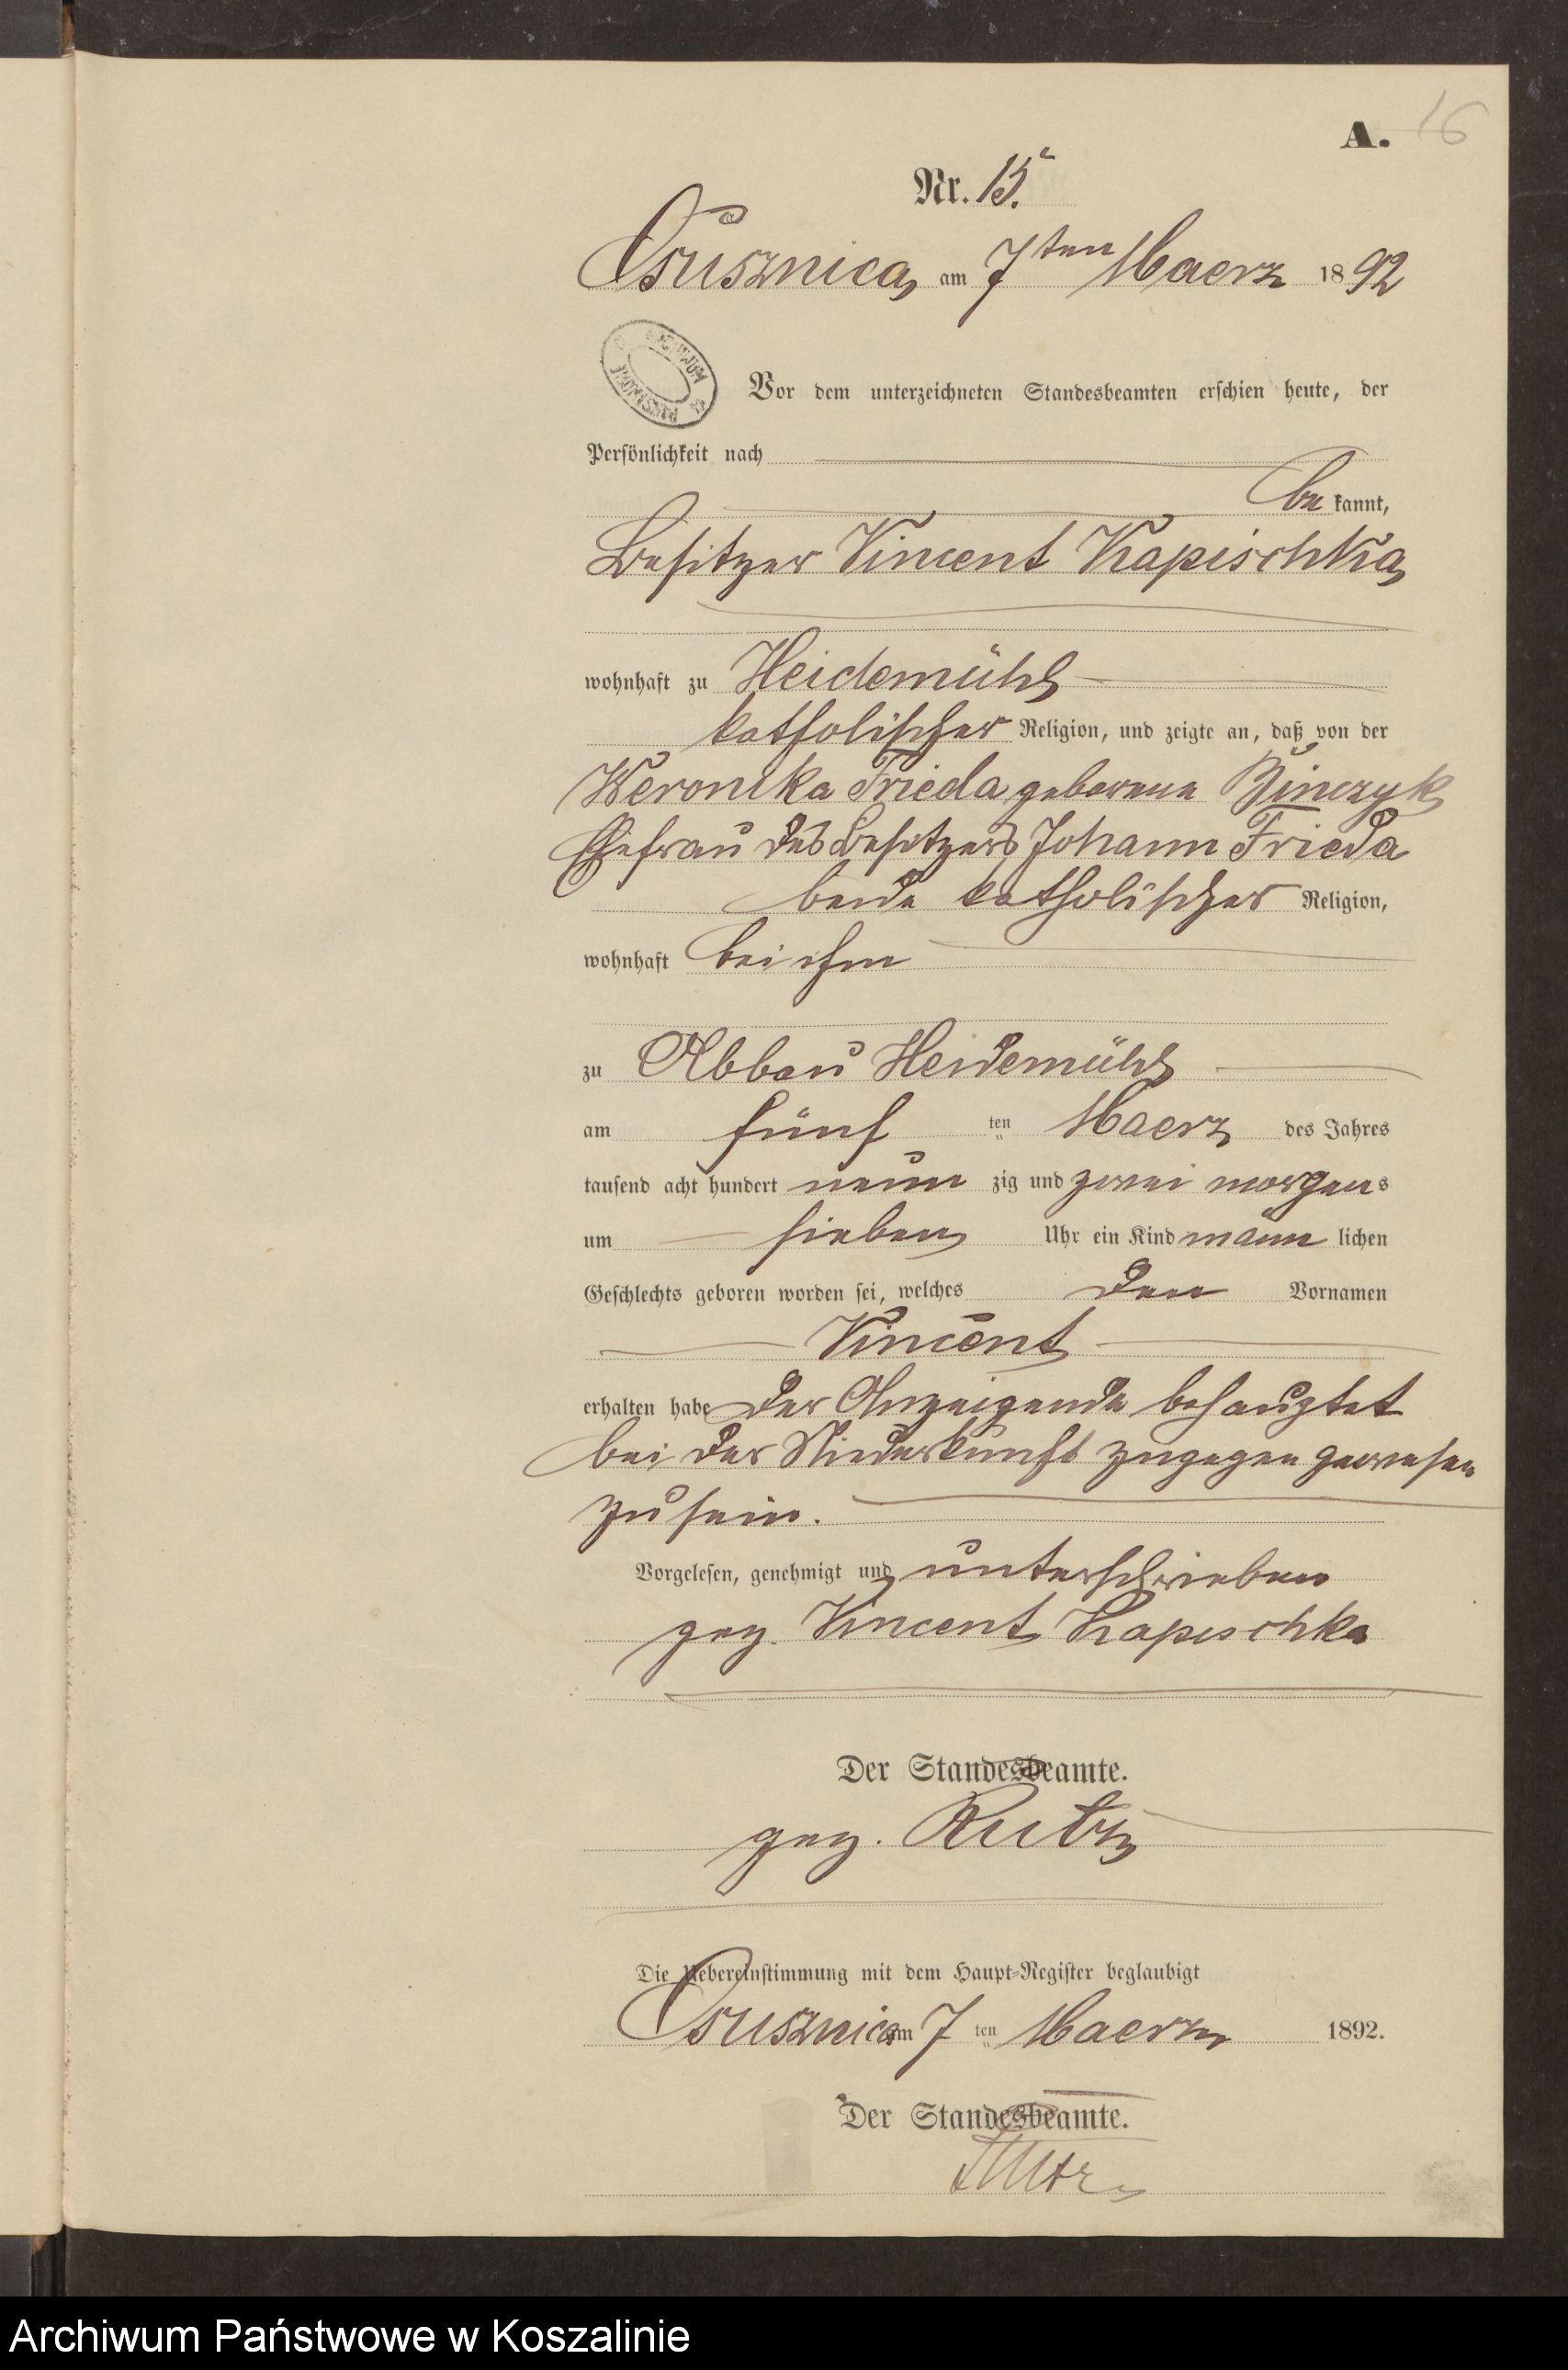 A. 16
Nr. 15.
Osusznica, am 7ten Maerz 1892
ARCHIWUM PAŃSTWOWE
Vor dem unterzeichneten Standesbeamten erschien heute, der
Persönlichkeit nach
be kannt,
Besitzer Vincent Kapischka
wohnhaft zu Heidemühl
katholischer Religion, und zeigte an, daß von der
Weronika Frieda geborene
Ehefrau des Besitzers Johann Frieda
beide katholischer Religion,
wohnhaft bei ihm
zu Abbau Heidemühl
am fünf ten Maerz des Jahres
tausend acht hundert neun zig und zwei morgens
um sieben Uhr ein Kind männ lichen
Geschlechts geboren worden sei, welches den Vornamen
Vincent
erhalten habe Der Anzeigende behauptet
bei der Niederkunft zugegen gewesen
zu sein.
Vorgelesen, genehmigt und unterschrieben
gez. Vincent Kapischka
Der Standesbeamte.
gez. Rutz
Die Uebereinstimmung mit dem Haupt-Register beglaubigt
Osusznica am 7 ten Maerz 1892.
Der Standesbeamte.
Rutz
Archiwum Państwowe w Koszalinie